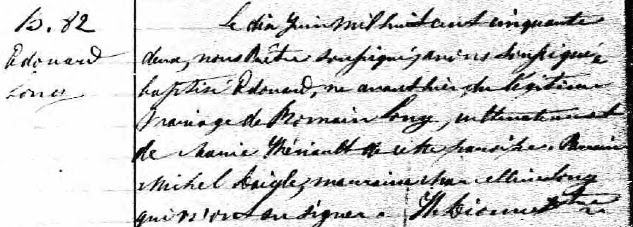 B. 82
Edouard
Long
Le dix Juin mil huit cent cinquante
deux, nous Prêtre soussigné, avons soussigné
baptisé Edouard, né avant hier du légitime
mariage de Romain Long, cultivateur et
de Marie Thériault de cette paroisse. Parrain
Michel Daigle, marraine
qui n'ont su signer. H. Dionne Ptre